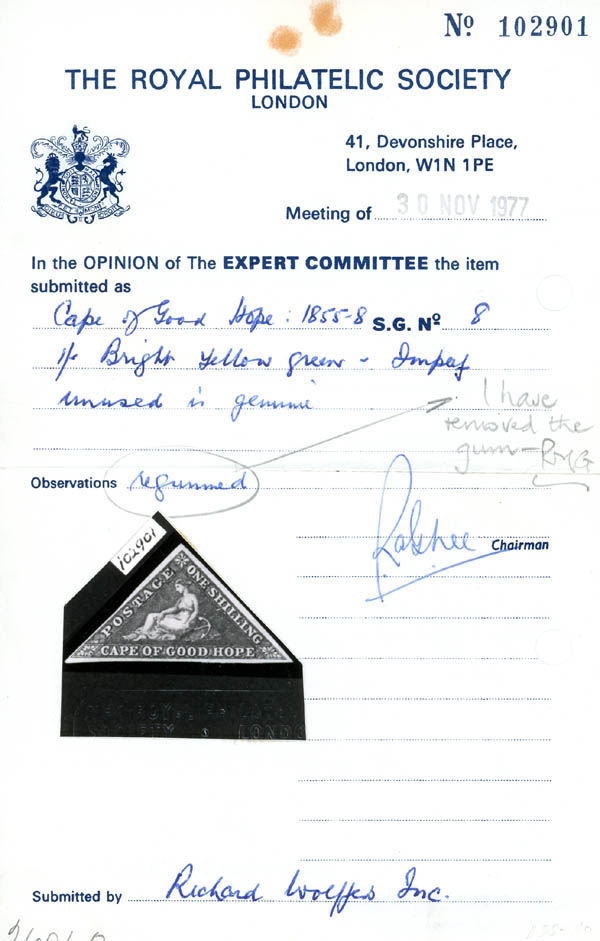 Nº 102901
THE ROYAL PHILATELIC SOCIETY
LONDON
41, Devonshire Place,
London, W1N 1PE
Meeting of 30 NOV 1977
In the OPINION of The EXPERT COMMITTEE the item
submitted as
Cape of Good Hope: 1855-8 S.G. Nº 8
1/- Bright Yellow green - Imperf
unused is genuine
I have
removed the
gum - RMG
Observations regummed
Chairman
102901
POSTAGE
ONE SHILLING
CAPE OF GOOD HOPE
LONDON
Submitted by Richard Wolffers Inc.